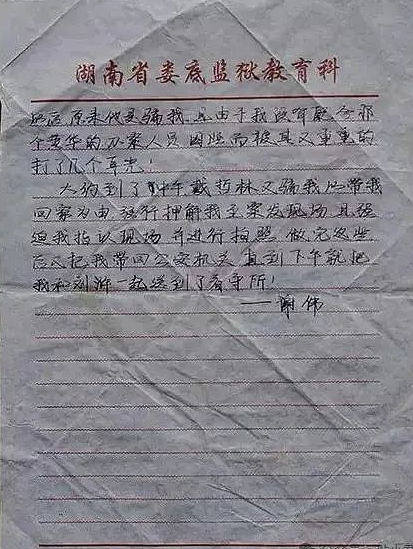 湖南省娄底监狱教育科
原来他是骗我,且由于我没有配合那
个姓华的办案人员因此而被其又重重的
打了几个耳光!
大约到了中午戴哲林又骗我以带我
回家为由强行押解我至案发现场且强
迫我指认现场并进行拍照做完这些
后又把我带回公安机关直到下午就把
我和刘 一起送到了看守所!
——谢伟